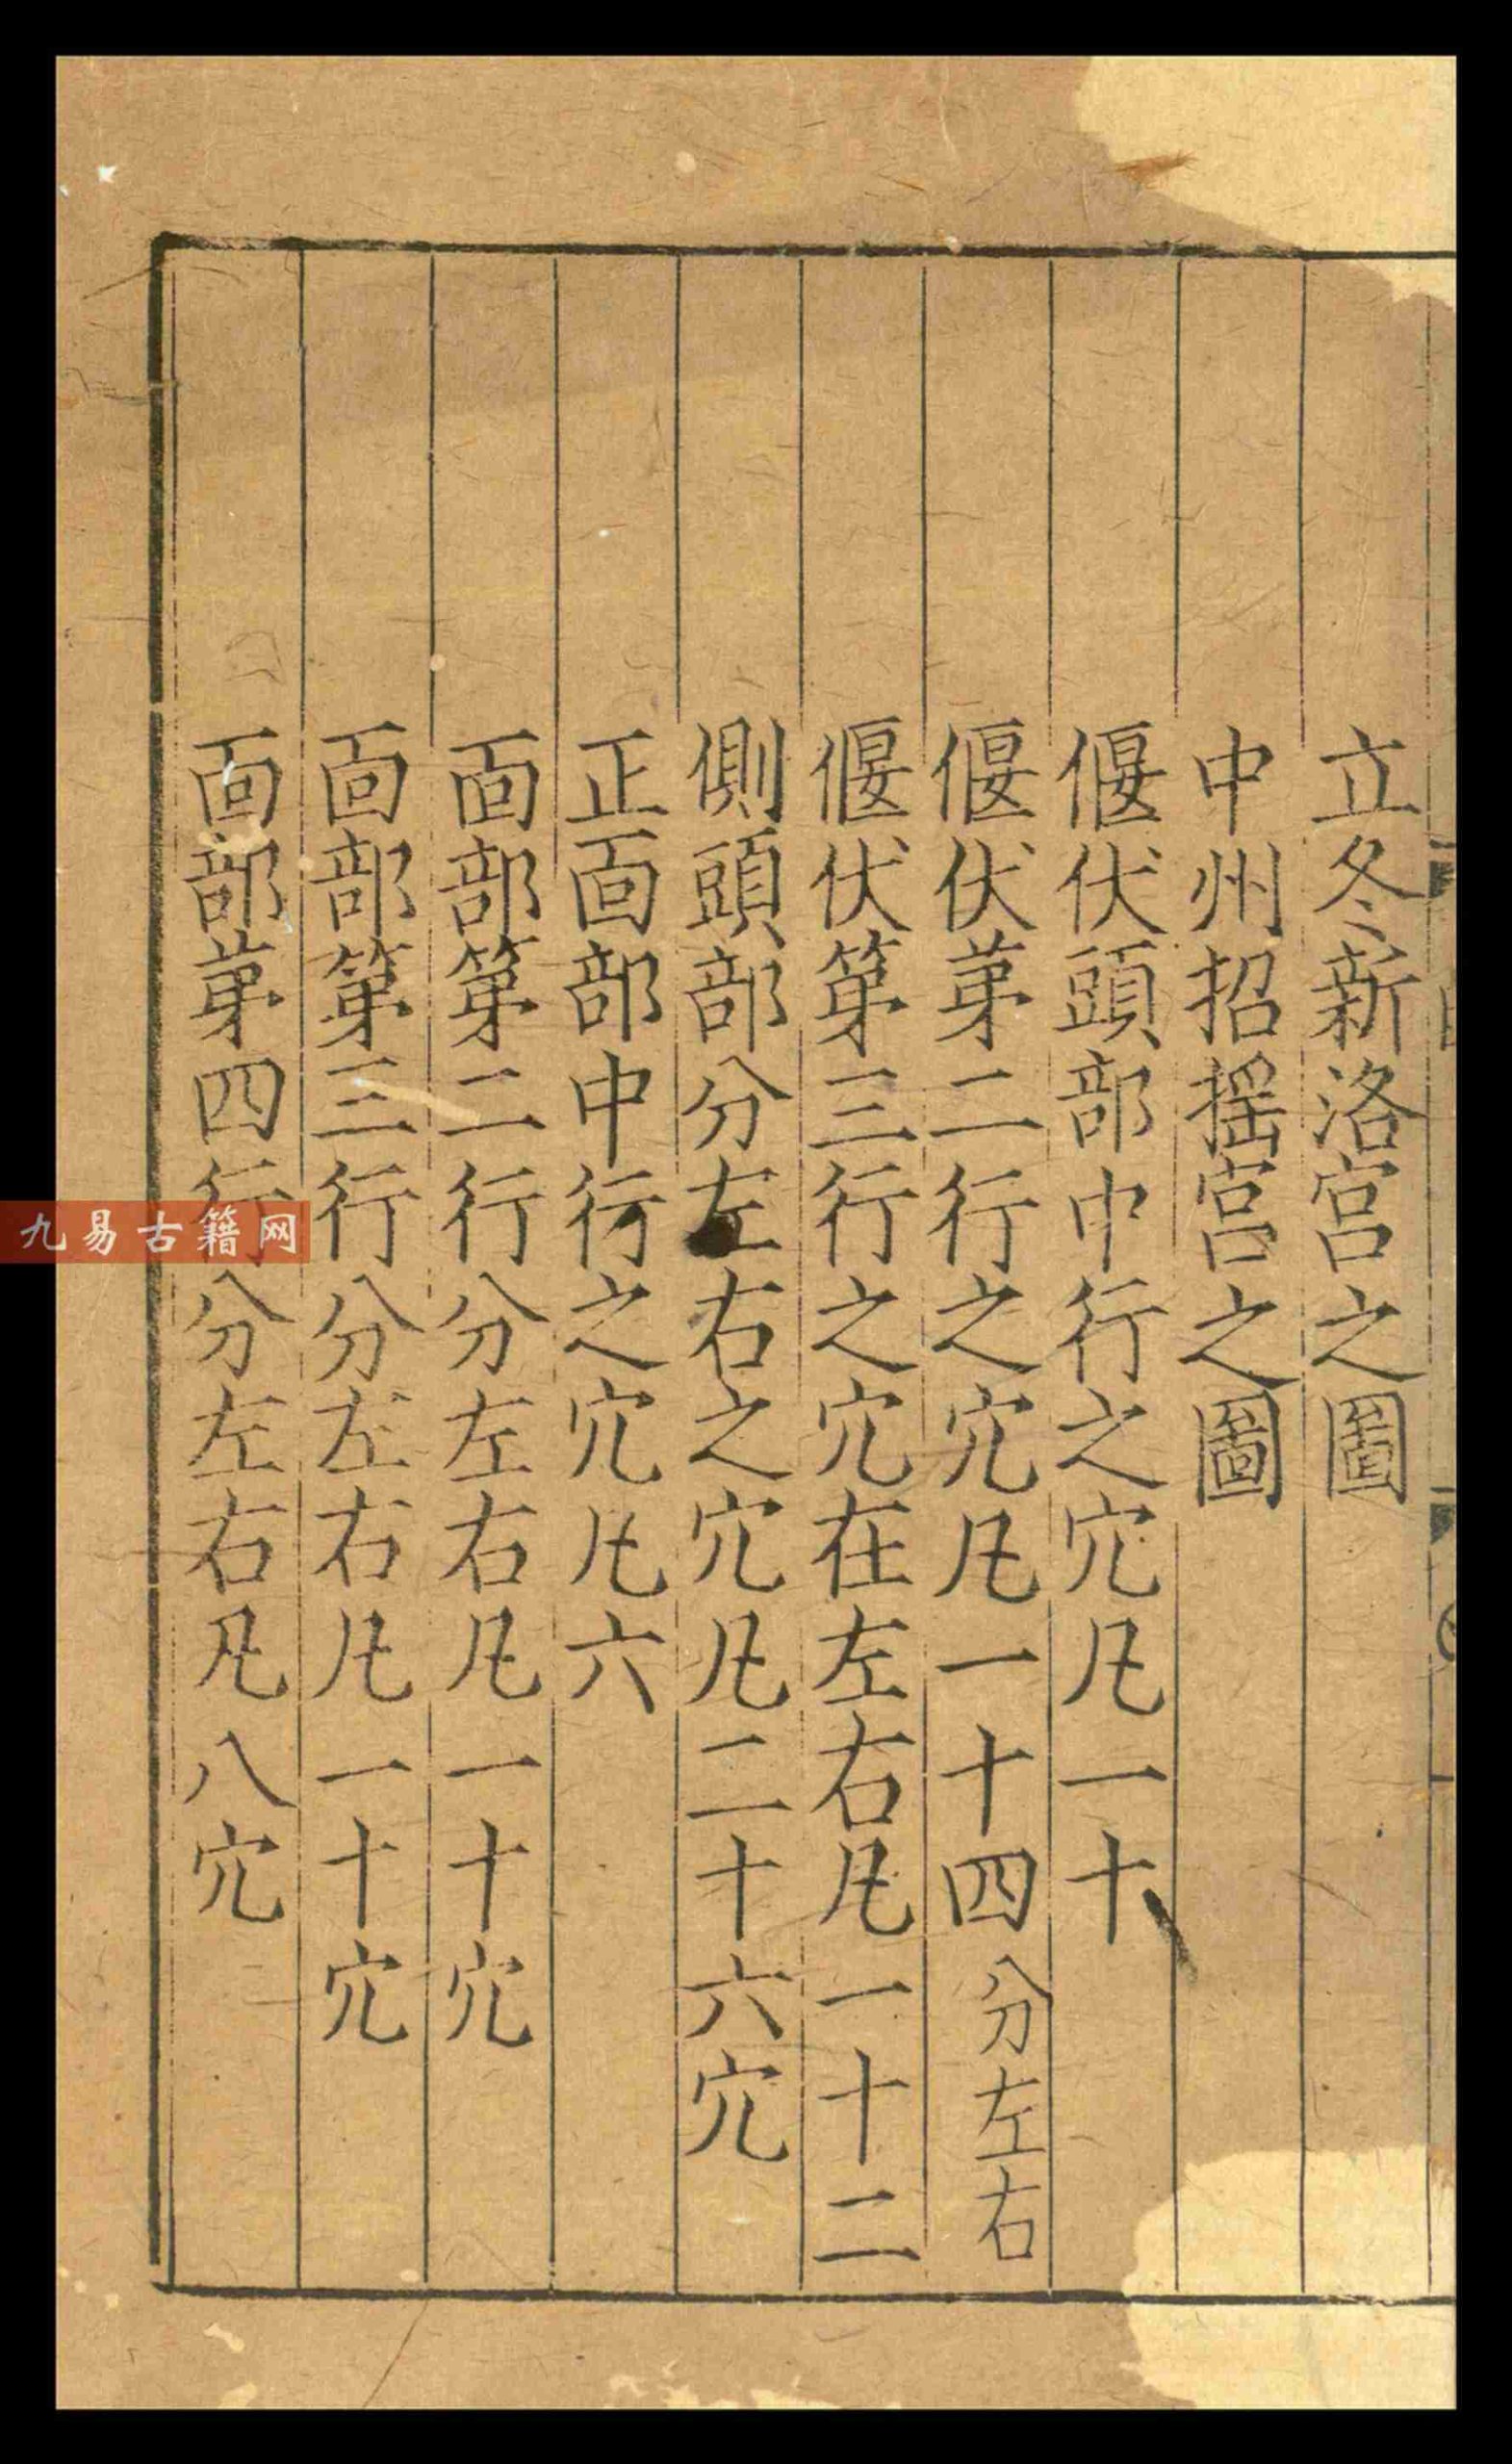 立冬新洛宫之圖
中州招揺宫之圖
偃伏頭部中行之穴凡一十
偃伏第二行之穴凡一十四分左右
偃伏第三行之穴在左右凡一十二
側頭部分左右之穴凡二十六穴
正面部中行之穴凡六
面部第二行分左右凡一十穴
面部第三行分左右凡一十穴
面部第四行分左右凡八穴
九易古籍网